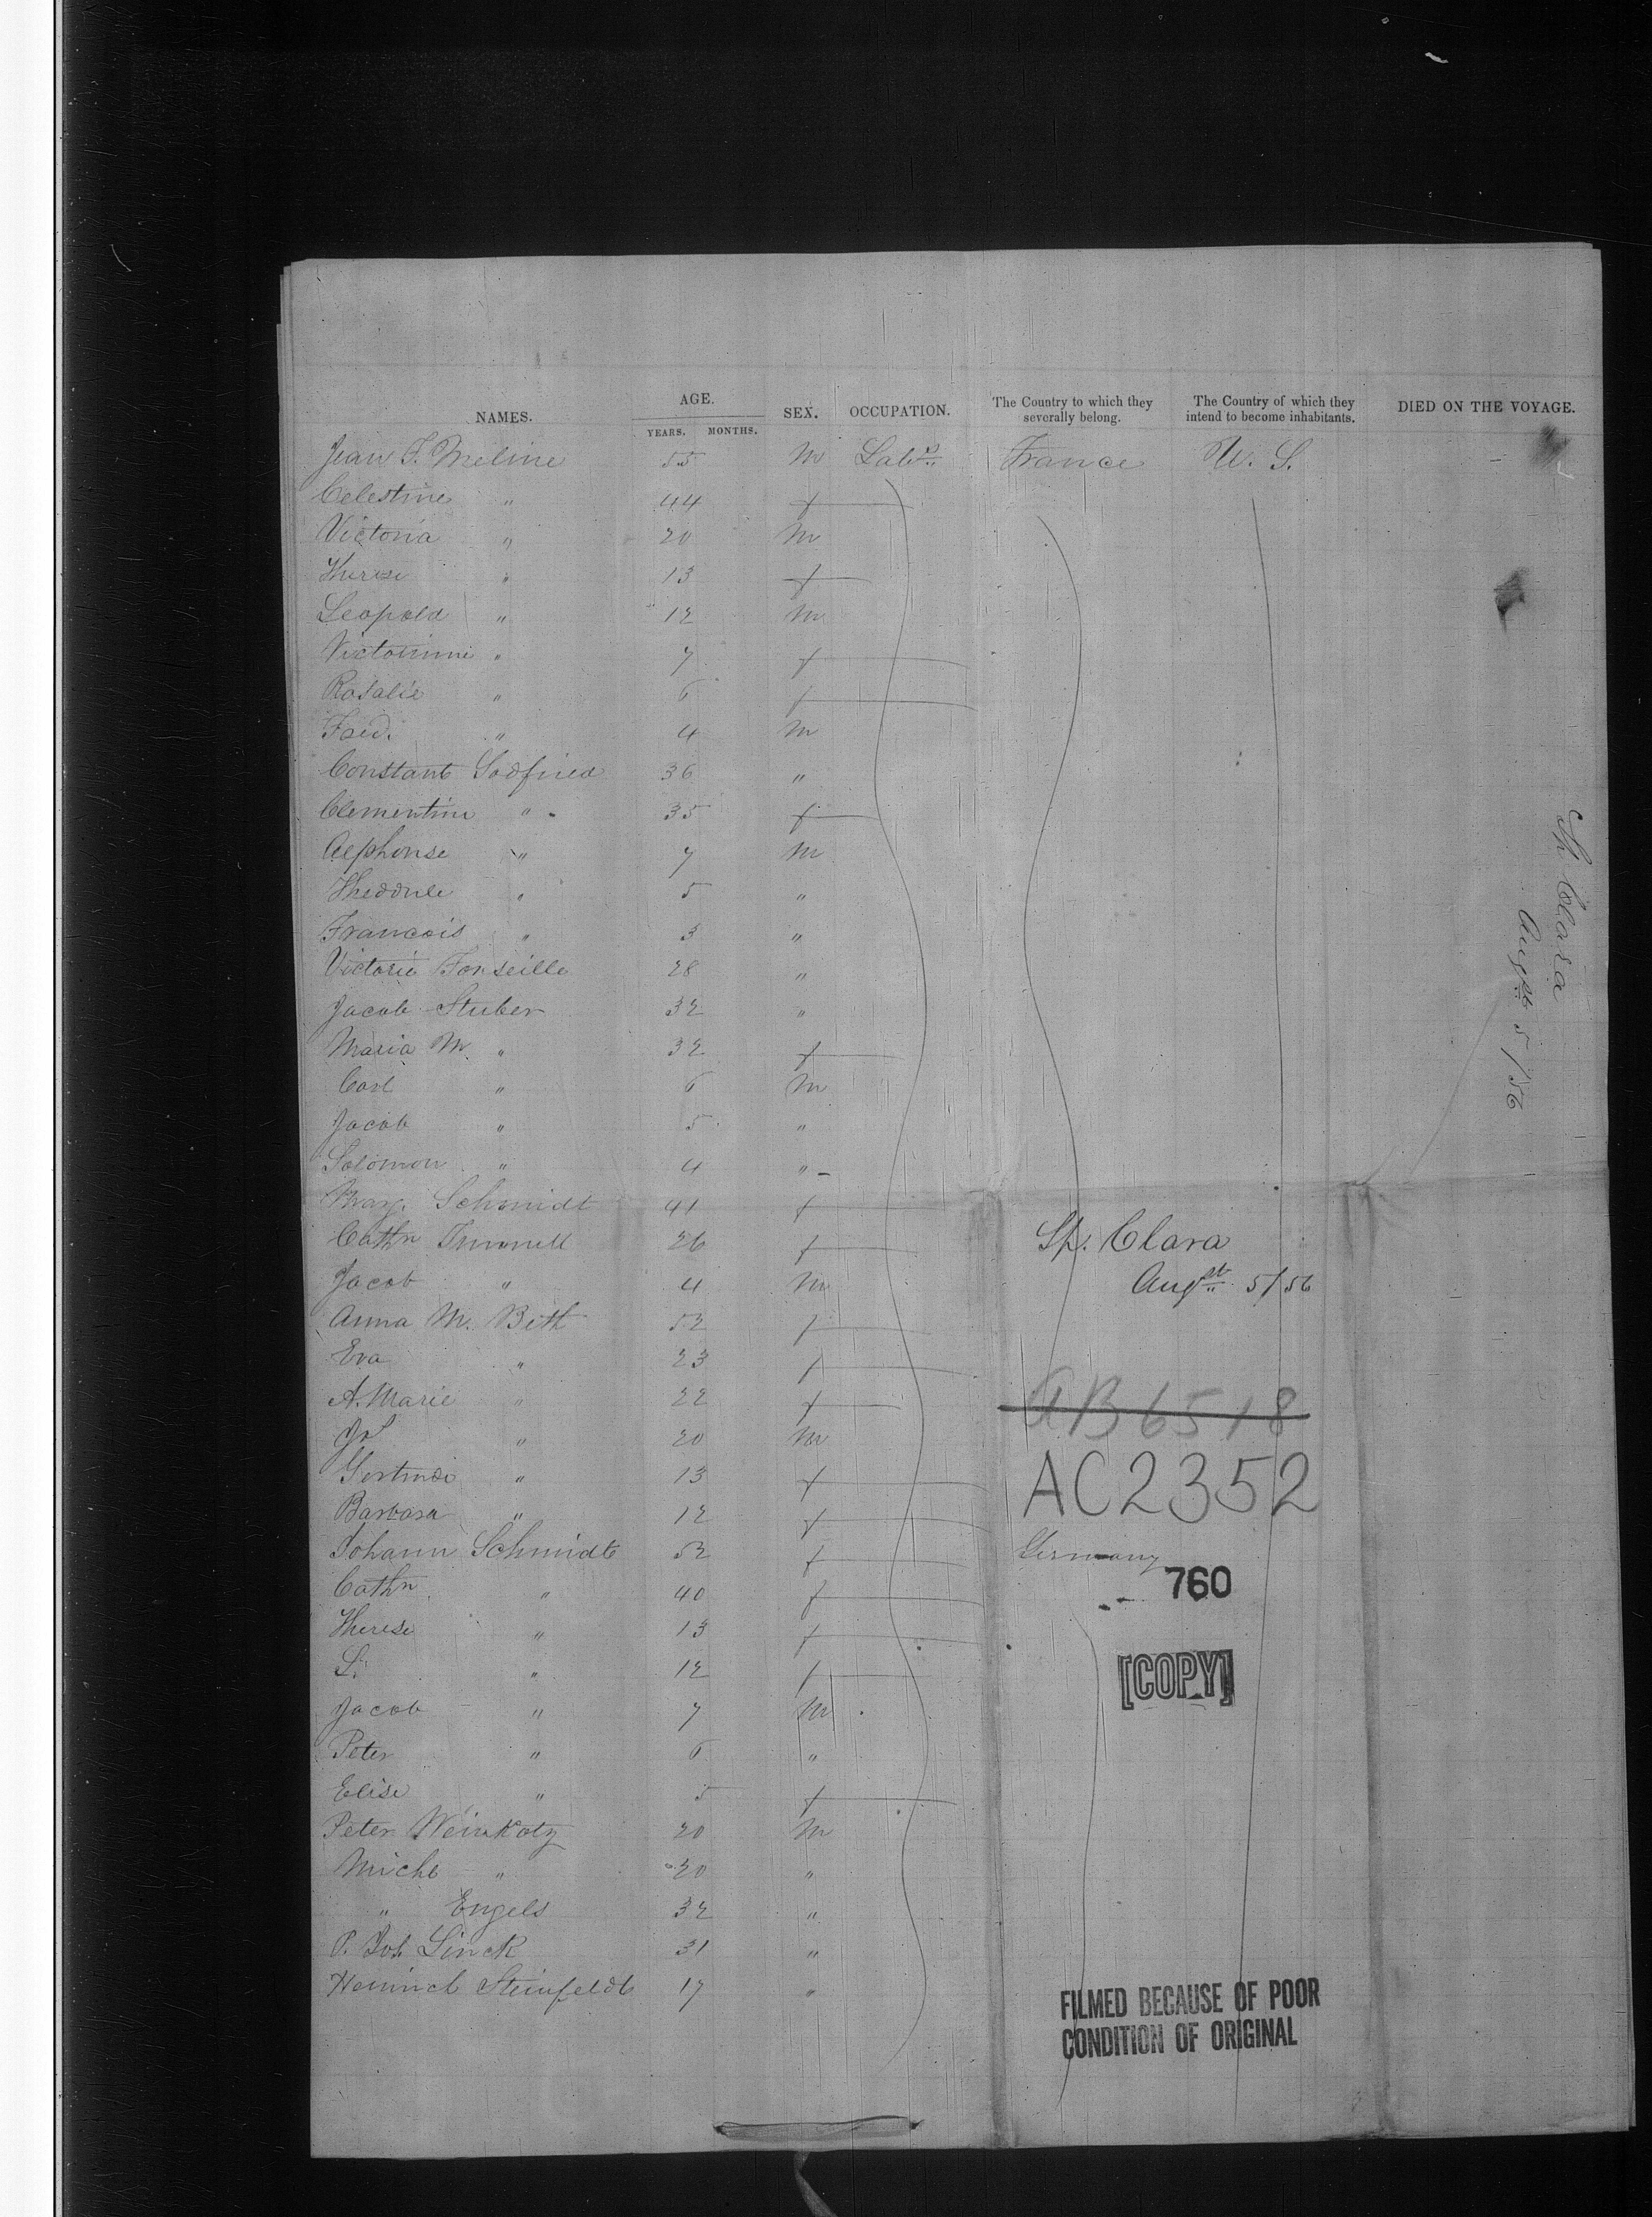 NAMES. AGE. YEARS. MONTHS. SEX. OCCUPATION. The Country to which they severally belong. The Country of which they intend to become inhabitants. DIED ON THE VOYAGE.
Jean F. Meline 55 M Labrs France U. S.
Celestine " 44 f
Victoria " 20 M
Therese " 13 f
Leopold " 12 M
" 7 f
Rosalie " 6 f
" 4 M
Constant Godfried 36 "
Clementine " 35 f
Alphonse " 7 M
Theodule " 5 "
Francois " 3 "
Victorie 28 "
Jacob Stuber 32 "
Maria M. " 32 f
Carl " 6 M
Jacob " 5 "
Solomon " 4 "
Marg. Schmidt 41 f
Cathn 26 f
Jacob " 4 M
Anna M. Beth 52 f
Eva " 23 f
A. Marie " 22 f
" 20 M
Gertrude " 13 f
Barbara " 12 f
Johann Schmidt 52 f Germany
Cathn " 40 f
Therese " 13 f
" 12 f
Jacob " 7 M
Peter " 6 "
Elise " 5 f
Peter Weinkotz 20 M
Michl " 20 "
" Engels 32 "
P. Joh Linck 31 "
Heinrich Steinfeldt 17 "
Sh Clara
Augst 5/56
Sh. Clara
Augst 5/56
AB6518
AC2352
760
[COPY]
FILMED BECAUSE OF POOR
CONDITION OF ORIGINAL